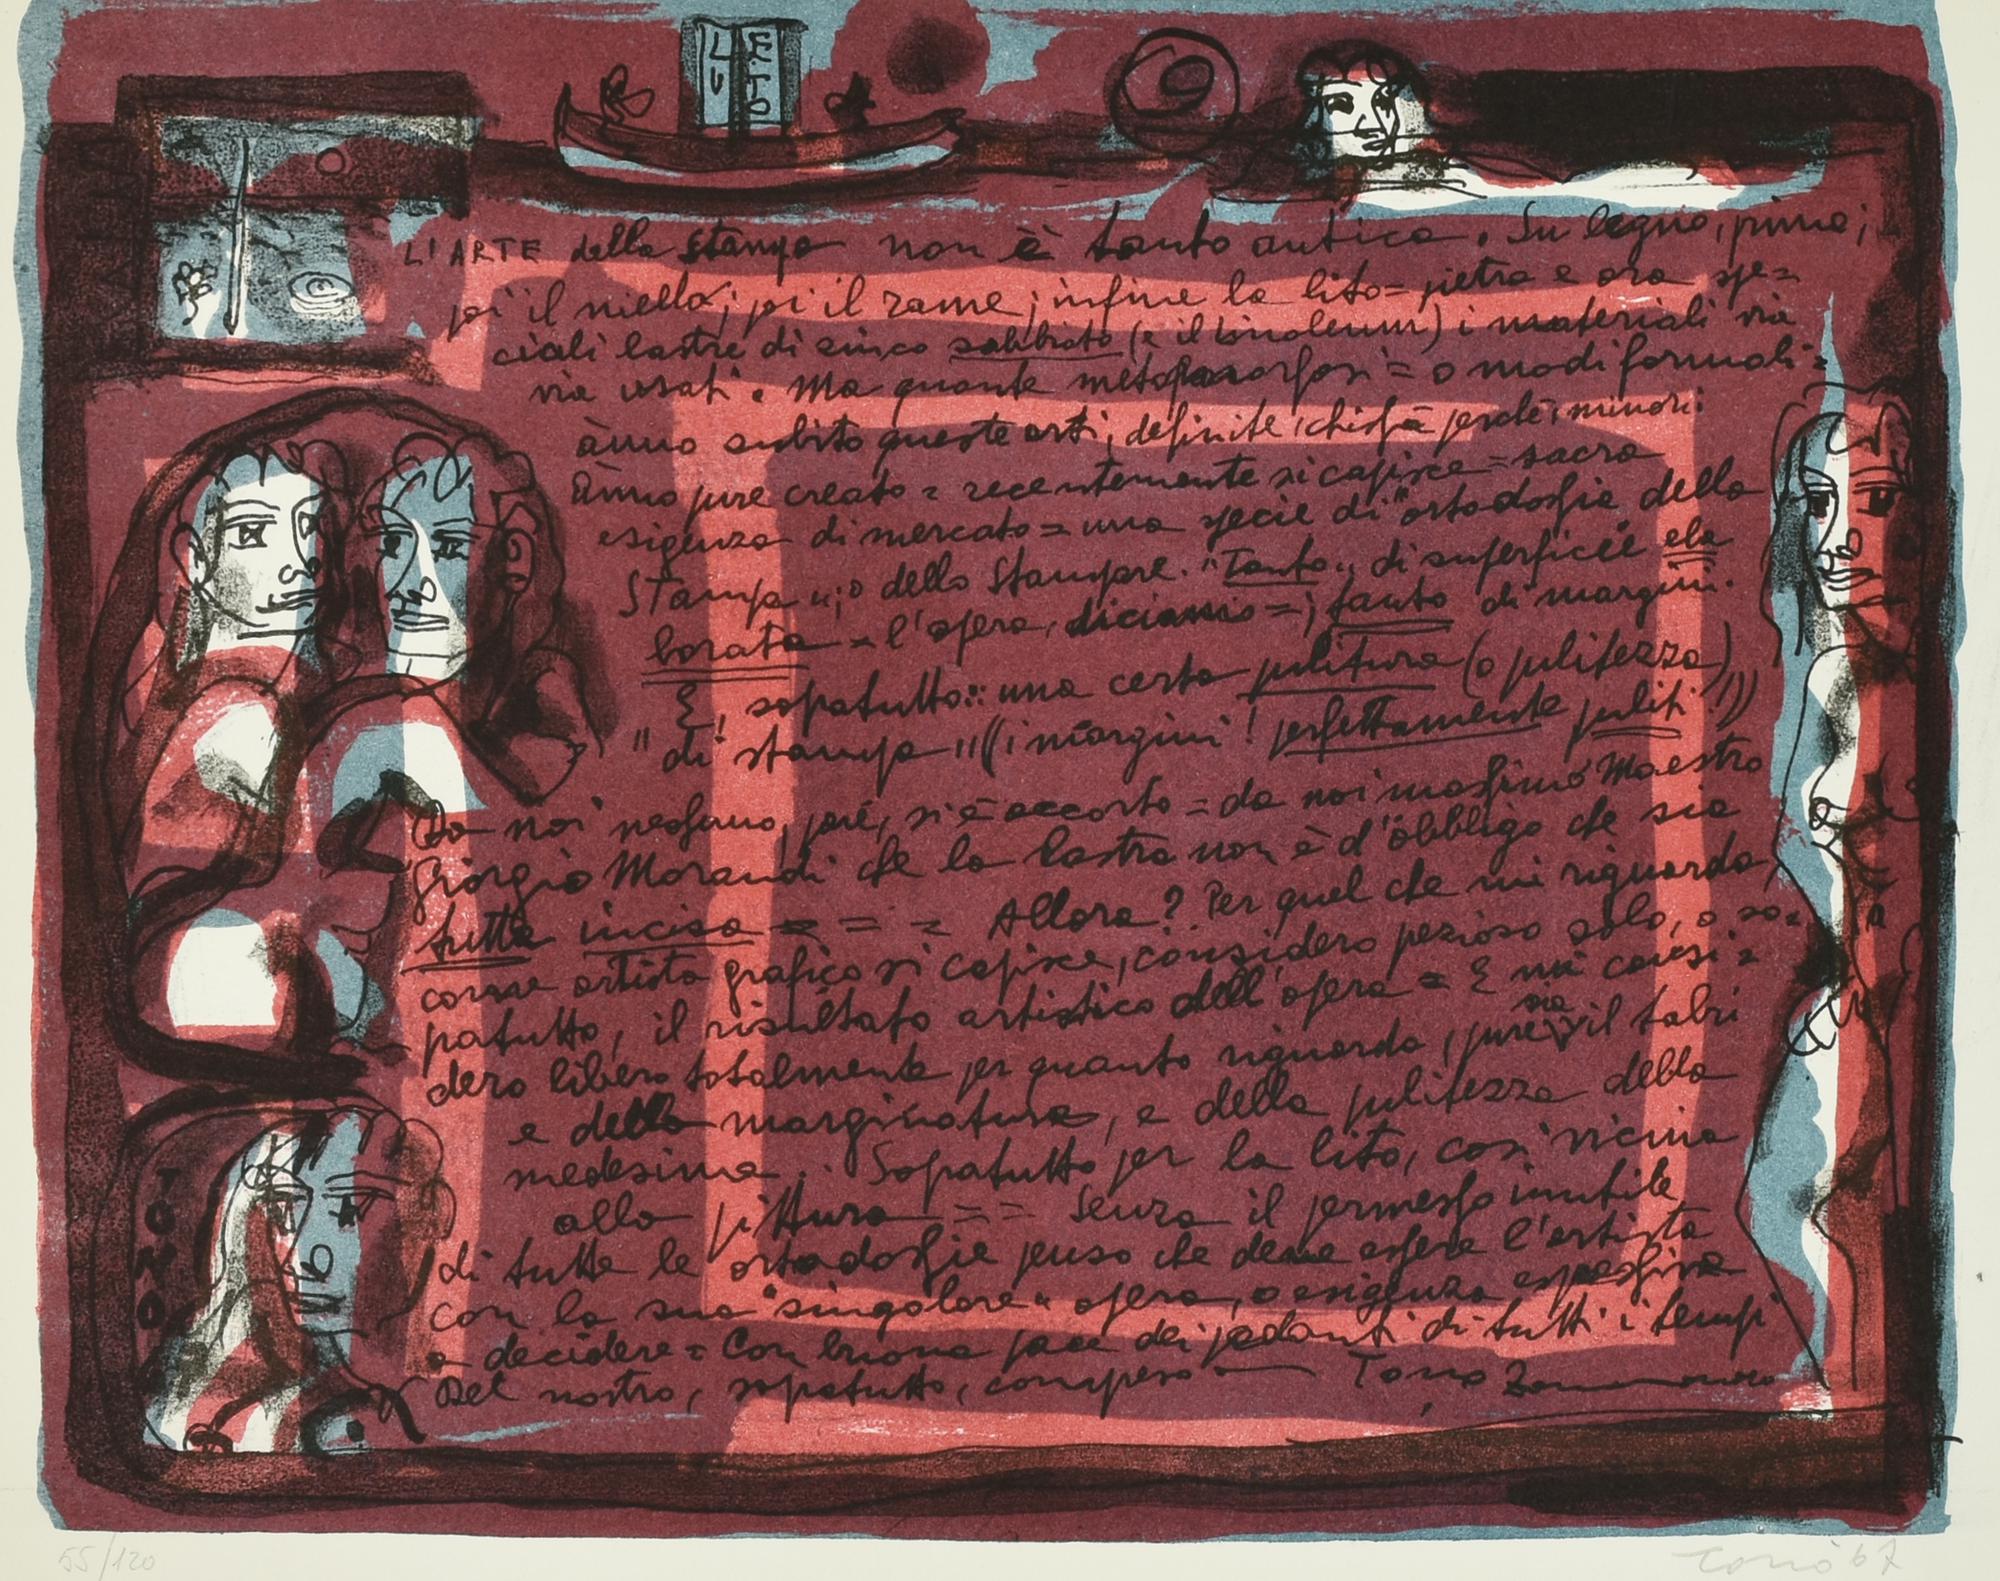 LU E TO
L'ARTE della stampa non è tanto antica. Su legno, prima;
poi il niello; poi il rame; infine la lito= pietra e ora spe=
ciali lastre di zinco sabbiato (e il linoleum) i materiali via
via usati. Ma quante metamorfosi = o modi formali =
ànno subito queste arti, definite, chissà perché, minori:
Ànno pure creato = recentemente si capisce = sacra
esigenza di mercato = una specie di "ortodossia della
Stampa"; o dello Stampare. "Tanto" di superficie ela
borata = l'opera, diciamo =; tanto di margini.
E, sopatutto:: una certa pulitura (o pulitezza)
" di stampa " ((i margini! perfettamente puliti!))
Da noi nessuno, poi, si è accorto = da noi massimo Maestro
Giorgio Morandi che la lastra non è d'obbligo che sia
tutta incisa = = = Allora? Per quel che mi riguarda,
come artista grafico si capisce, considero prezioso solo, o so=
patutto, il risultato artistico dell'opera = E mi consi=
dero libero totalmente per quanto riguarda, pure sia il
e della marginatura, e della pulitezza della
medesima. Sopatutto per la lito, così vicina
alla pittura = = = Senza il permesso inutile
di tutte le ortodossie penso che deve essere l'artista
con la sua "singolare" opera, o esigenza espressiva
a decidere = Con buona pace dei pedanti di tutti i tempi
Del nostro, sopatutto, compreso — Tono Zancanaro
TONO
55/120
Tono '67